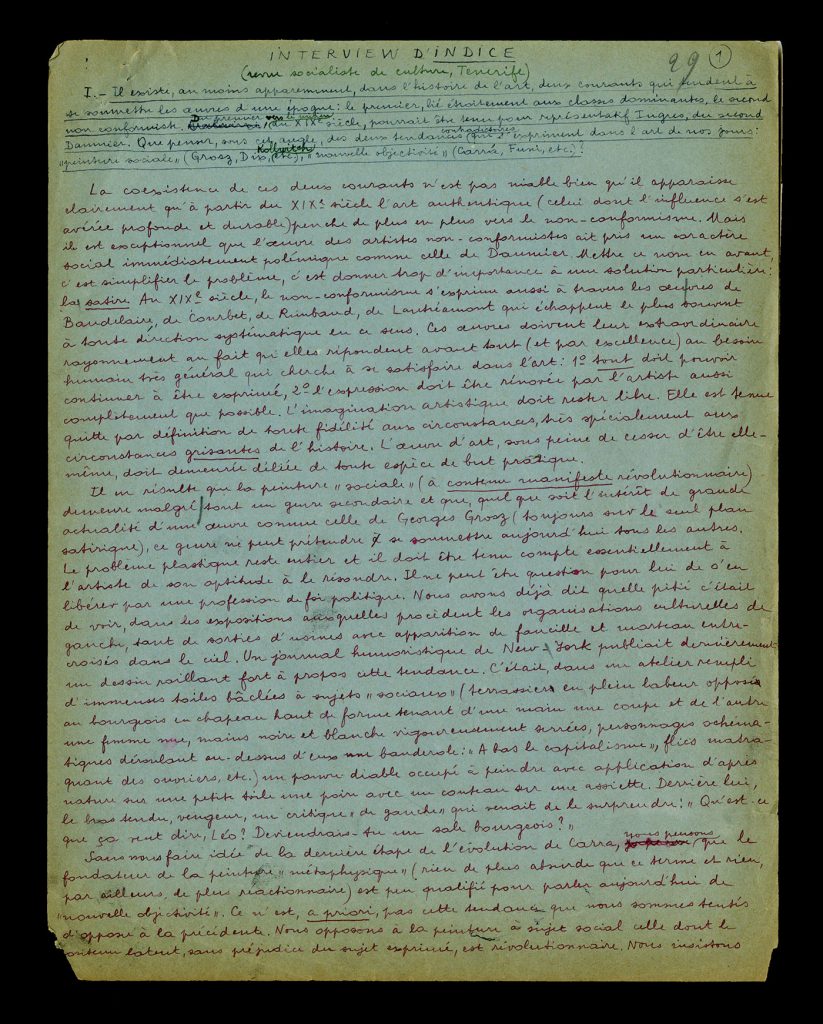 INTERVIEW D'INDICE
29 1
(revue socialiste de culture, Tenerife)
I.- Il existe, au moins apparemment, dans l'histoire de l'art, deux courants qui tendent à
se soumettre les œuvres d'une époque: le premier, lié étroitement aux classes dominantes, le second
non conformiste. Du premier vers le milieu du XIXe siècle, pourrait être tenu pour représentatif Ingres, du second
Daumier. Que penser, sous cet angle, des deux tendances contradictoires qui s'expriment dans l'art de nos jours:
"peinture sociale" (Grosz, Dix, Kollwitch etc.), "nouvelle objectivité" (Carrá, Funi, etc.)?
La coexistence de ces deux courants n'est pas niable bien qu'il apparaisse
clairement qu'à partir du XIXe siècle l'art authentique (celui dont l'influence s'est
avérée profonde et durable) penche de plus en plus vers le non-conformisme. Mais
il est exceptionnel que l'œuvre des artistes non-conformistes ait pris un caractère
social immédiatement polémique comme celle de Daumier. Mettre ce nom en avant,
c'est simplifier le problème, c'est donner trop d'importance à une solution particulière:
la satire. Au XIXe siècle, le non-conformisme s'exprime aussi à travers les œuvres de
Baudelaire, de Courbet, de Rimbaud, de Lautréamont qui échappent le plus souvent
à toute direction systématique en ce sens. Ces œuvres doivent leur extraordinaire
rayonnement au fait qu'elles répondent avant tout (et par excellence) au besoin
humain très général qui cherche à se satisfaire dans l'art: 1º tout doit pouvoir
continuer à être exprimé, 2º l'expression doit être rénovée par l'artiste aussi
complètement que possible. L'imagination artistique doit rester libre. Elle est tenue
quitte par définition de toute fidélité aux circonstances, très spécialement aux
circonstances grisantes de l'histoire. L'œuvre d'art, sous peine de cesser d'être elle-
même, doit demeurée déliée de toute espèce de but pratique.
Il en résulte que la peinture "sociale" (à contenu manifeste révolutionnaire)
demeure malgré tout un genre secondaire et que, quel que soit l'intérêt de grande
actualité d'une œuvre comme celle de Georges Grosz (toujours sur le seul plan
satirique), ce genre ne peut prétendre à se soumettre aujourd'hui tous les autres.
Le problème plastique reste entier et il doit être tenu compte essentiellement à
l'artiste de son aptitude à le résoudre. Il ne peut être question pour lui de s'en
libérer par une profession de foi politique. Nous avons déjà dit quelle pitié c'était
de voir, dans les expositions auxquelles procèdent les organisations culturelles de
gauche, tant de sorties d'usines avec apparition de faucille et marteau entre-
croisés dans le ciel. Un journal humoristique de New-York publiait dernièrement
un dessin raillant fort à propos cette tendance. C'était, dans un atelier rempli
d'immenses toiles bâclées à sujets "sociaux" (terrassiers en plein labeur opposés
au bourgeois en chapeau haut de forme tenant d'une main une coupe et de l'autre
une femme nue, mains noire et blanche vigoureusement serrées, personnages schéma-
tiques déroulant au-dessus d'eux une banderole: "A bas le capitalisme", flics matra-
quant des ouvriers, etc.) un pauvre diable occupé à peindre avec application d'après
nature sur une petite toile une poire avec un couteau sur une assiette. Derrière lui,
le bras tendu, vengeur, un critique "de gauche" qui venait de le surprendre: "Qu'est-ce
que ça veut dire, Léo? Deviendrais-tu un sale bourgeois?"
Sans nous faire idée de la dernière étape de l'évolution de Carra, nous pensons que le
fondateur de la peinture "métaphysique" (rien de plus absurde que ce terme et rien,
par ailleurs, de plus réactionnaire) est peu qualifié pour parler aujourd'hui de
"nouvelle objectivité". Ce n'est, a priori, pas cette tendance que nous sommes tentés
d'opposer à la précédente. Nous opposons à la peinture à sujet social celle dont le
contenu latent, sans préjudice du sujet exprimé, est révolutionnaire. Nous insistons